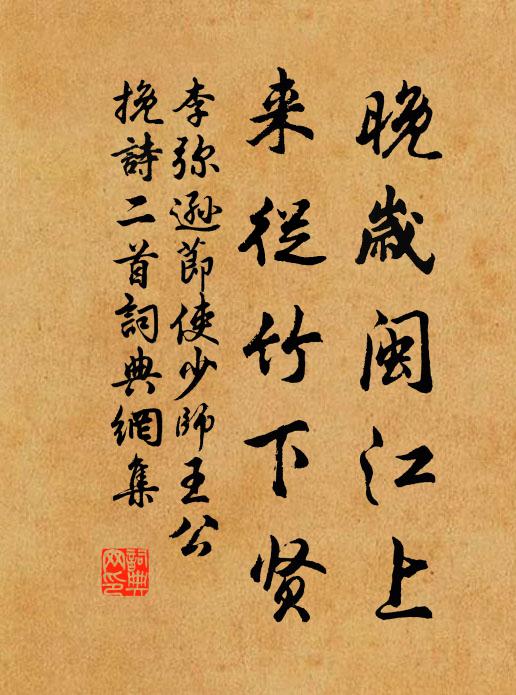 晚岁闽江上
来从竹下贤
李弥逊節使少師王公
挽詩二首詞典網集
詞典网印